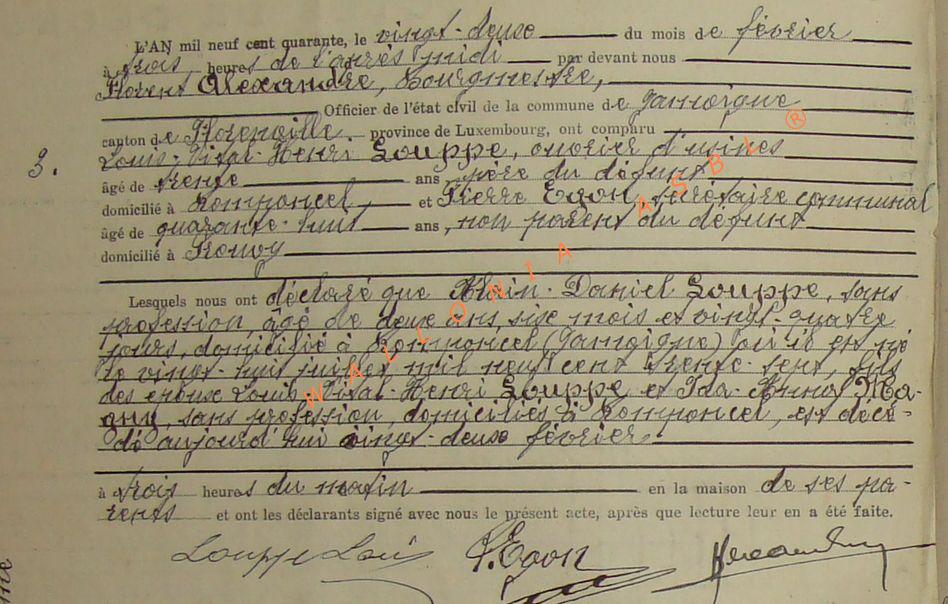 L'AN mil neuf cent quarante, le vingt-deux du mois de février
à trois heures de l'après midi par devant nous
Florent Alexandre, Bourgmestre,
Officier de l'état civil de la commune de Jamoigne
canton de Florenville, province de Luxembourg, ont comparu
Louis-Vital-Henri Louppe, ouvrier d'usines
3.
âgé de trente ans, père du défunt
domicilié à Romponcel, et Pierre Egon, secrétaire communal
âgé de quarante-huit ans, non parent du défunt
domicilié à Prouvy
Lesquels nous ont déclaré que Alain-Daniel Louppe, sans
profession, âgé de deux ans, six mois et vingt-quatre
jours, domicilié à Romponcel (Jamoigne) où il est né
le vingt-huit juillet mil neuf cent trente-sept, fils
des époux Louis-Vital-Henri Louppe et Ida-Anna
sans profession, domiciliés à Romponcel, est décé-
dé aujourd'hui vingt-deux février
à trois heures du matin en la maison de ses pa-
rents et ont les déclarants signé avec nous le présent acte, après que lecture leur en a été faite.
Louppe Louis P. Egon
WALLONIA ASBL ®